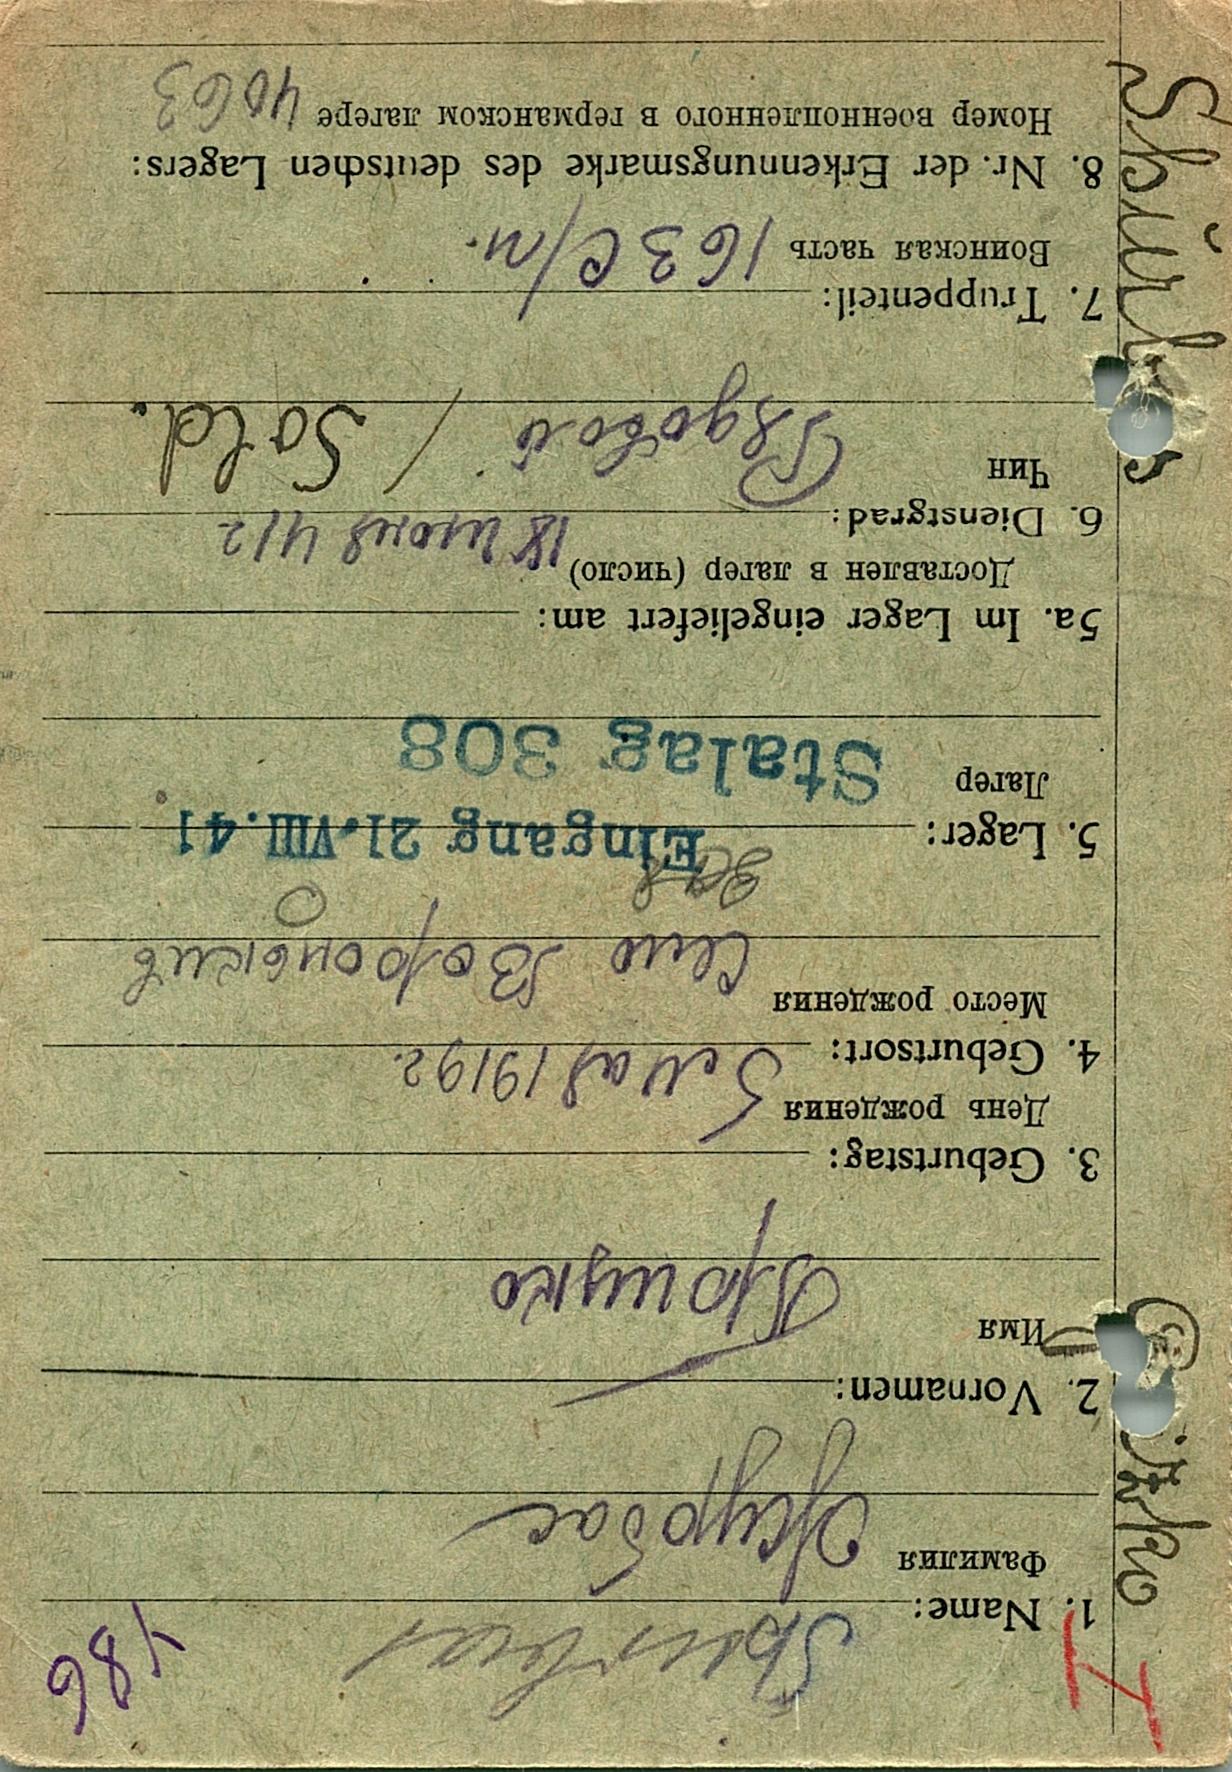 486
1. Name:
Фамилия Журбас
2. Vornamen:
Имя
3. Geburtstag:
День рождения 5 мая 1919 г.
4. Geburtsort:
Место рождения Село
5. Lager: Eingang 21. VIII. 41
Лагер Stalag 308
5a. Im Lager eingeliefert am:
Доставлен в лагер (число) 18 июня 41 г
6. Dienstgrad:
Чин Рядовой / Sold.
7. Truppenteil:
Воинская часть 163 с/п.
8. Nr. der Erkennungsmarke des deutschen Lagers:
Номер военнопленного в германском лагере 4063